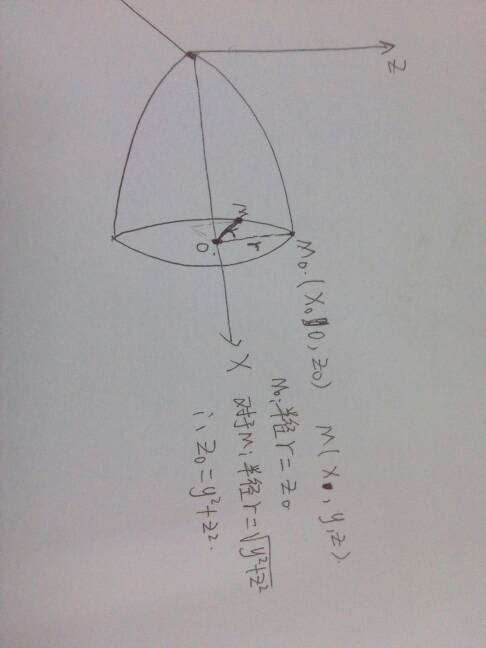 Z
M
r
r
O
X
M₀.(X₀, 0, Z₀) M(X, y, z).
M₀: 半径 r = z₀
对于M: 半径 r = √y²+z²
∴ Z₀ = y²+z².